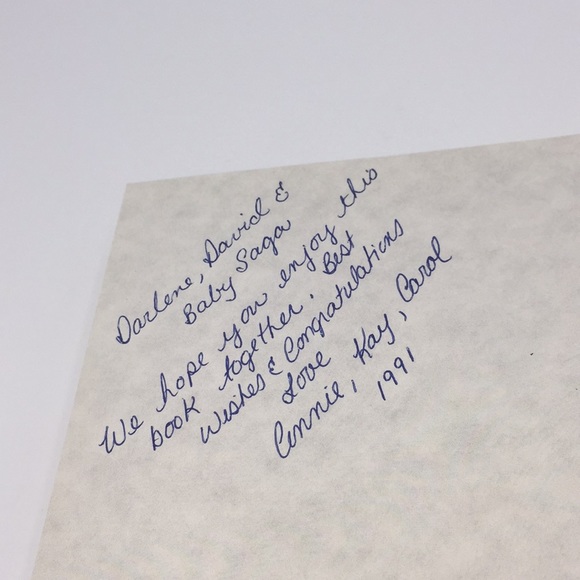 Darlene, David &
Baby Saga
We hope you enjoy this
book together. Best
Wishes & Congratulations
Love
Annie, Kay, Carol
1991